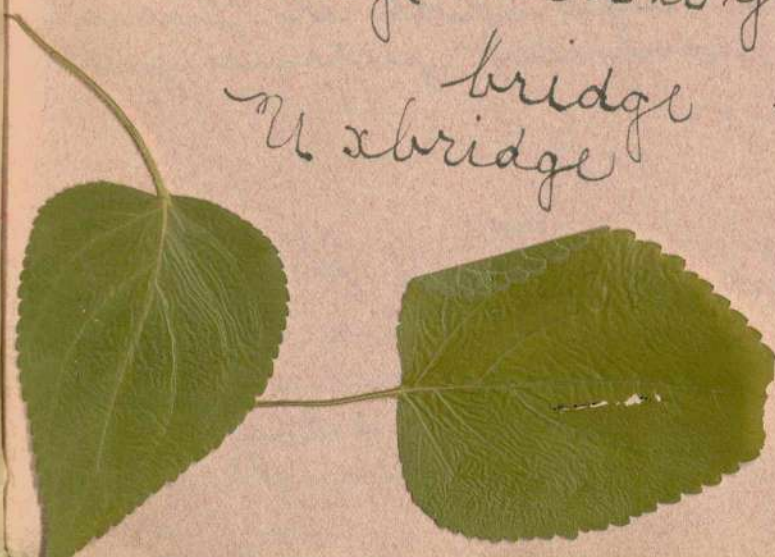 bridge
Uxbridge